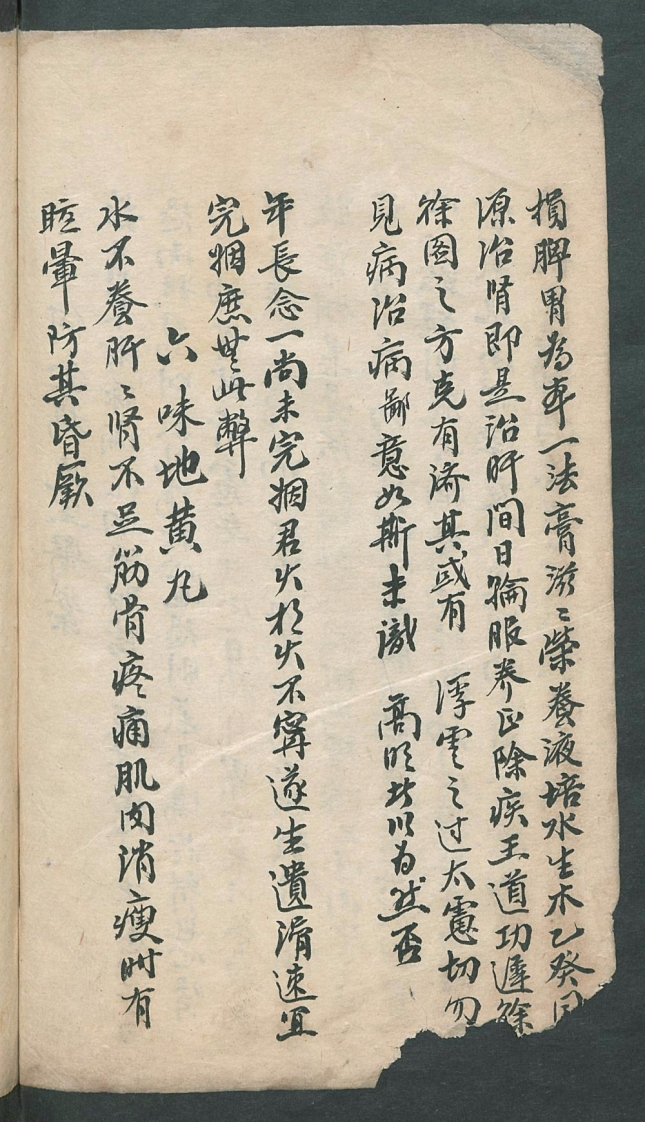 損脾胃為第一法膏滋〻榮養液培水生木乙癸同
源治腎即是治肝間日輪服养正除疾王道功遲徐
徐圖之方克有濟其或有 浮雲之过太憲切勿
見病治病鄙意如斯未識 高明以为然否
年長念一尚未完姻君火相火不甯遂生遺滑速宜
完姻庶無此弊
六味地黄丸
水不養肝〻腎不足筋骨疼痛肌肉消瘦时有
眩暈防其昏厥